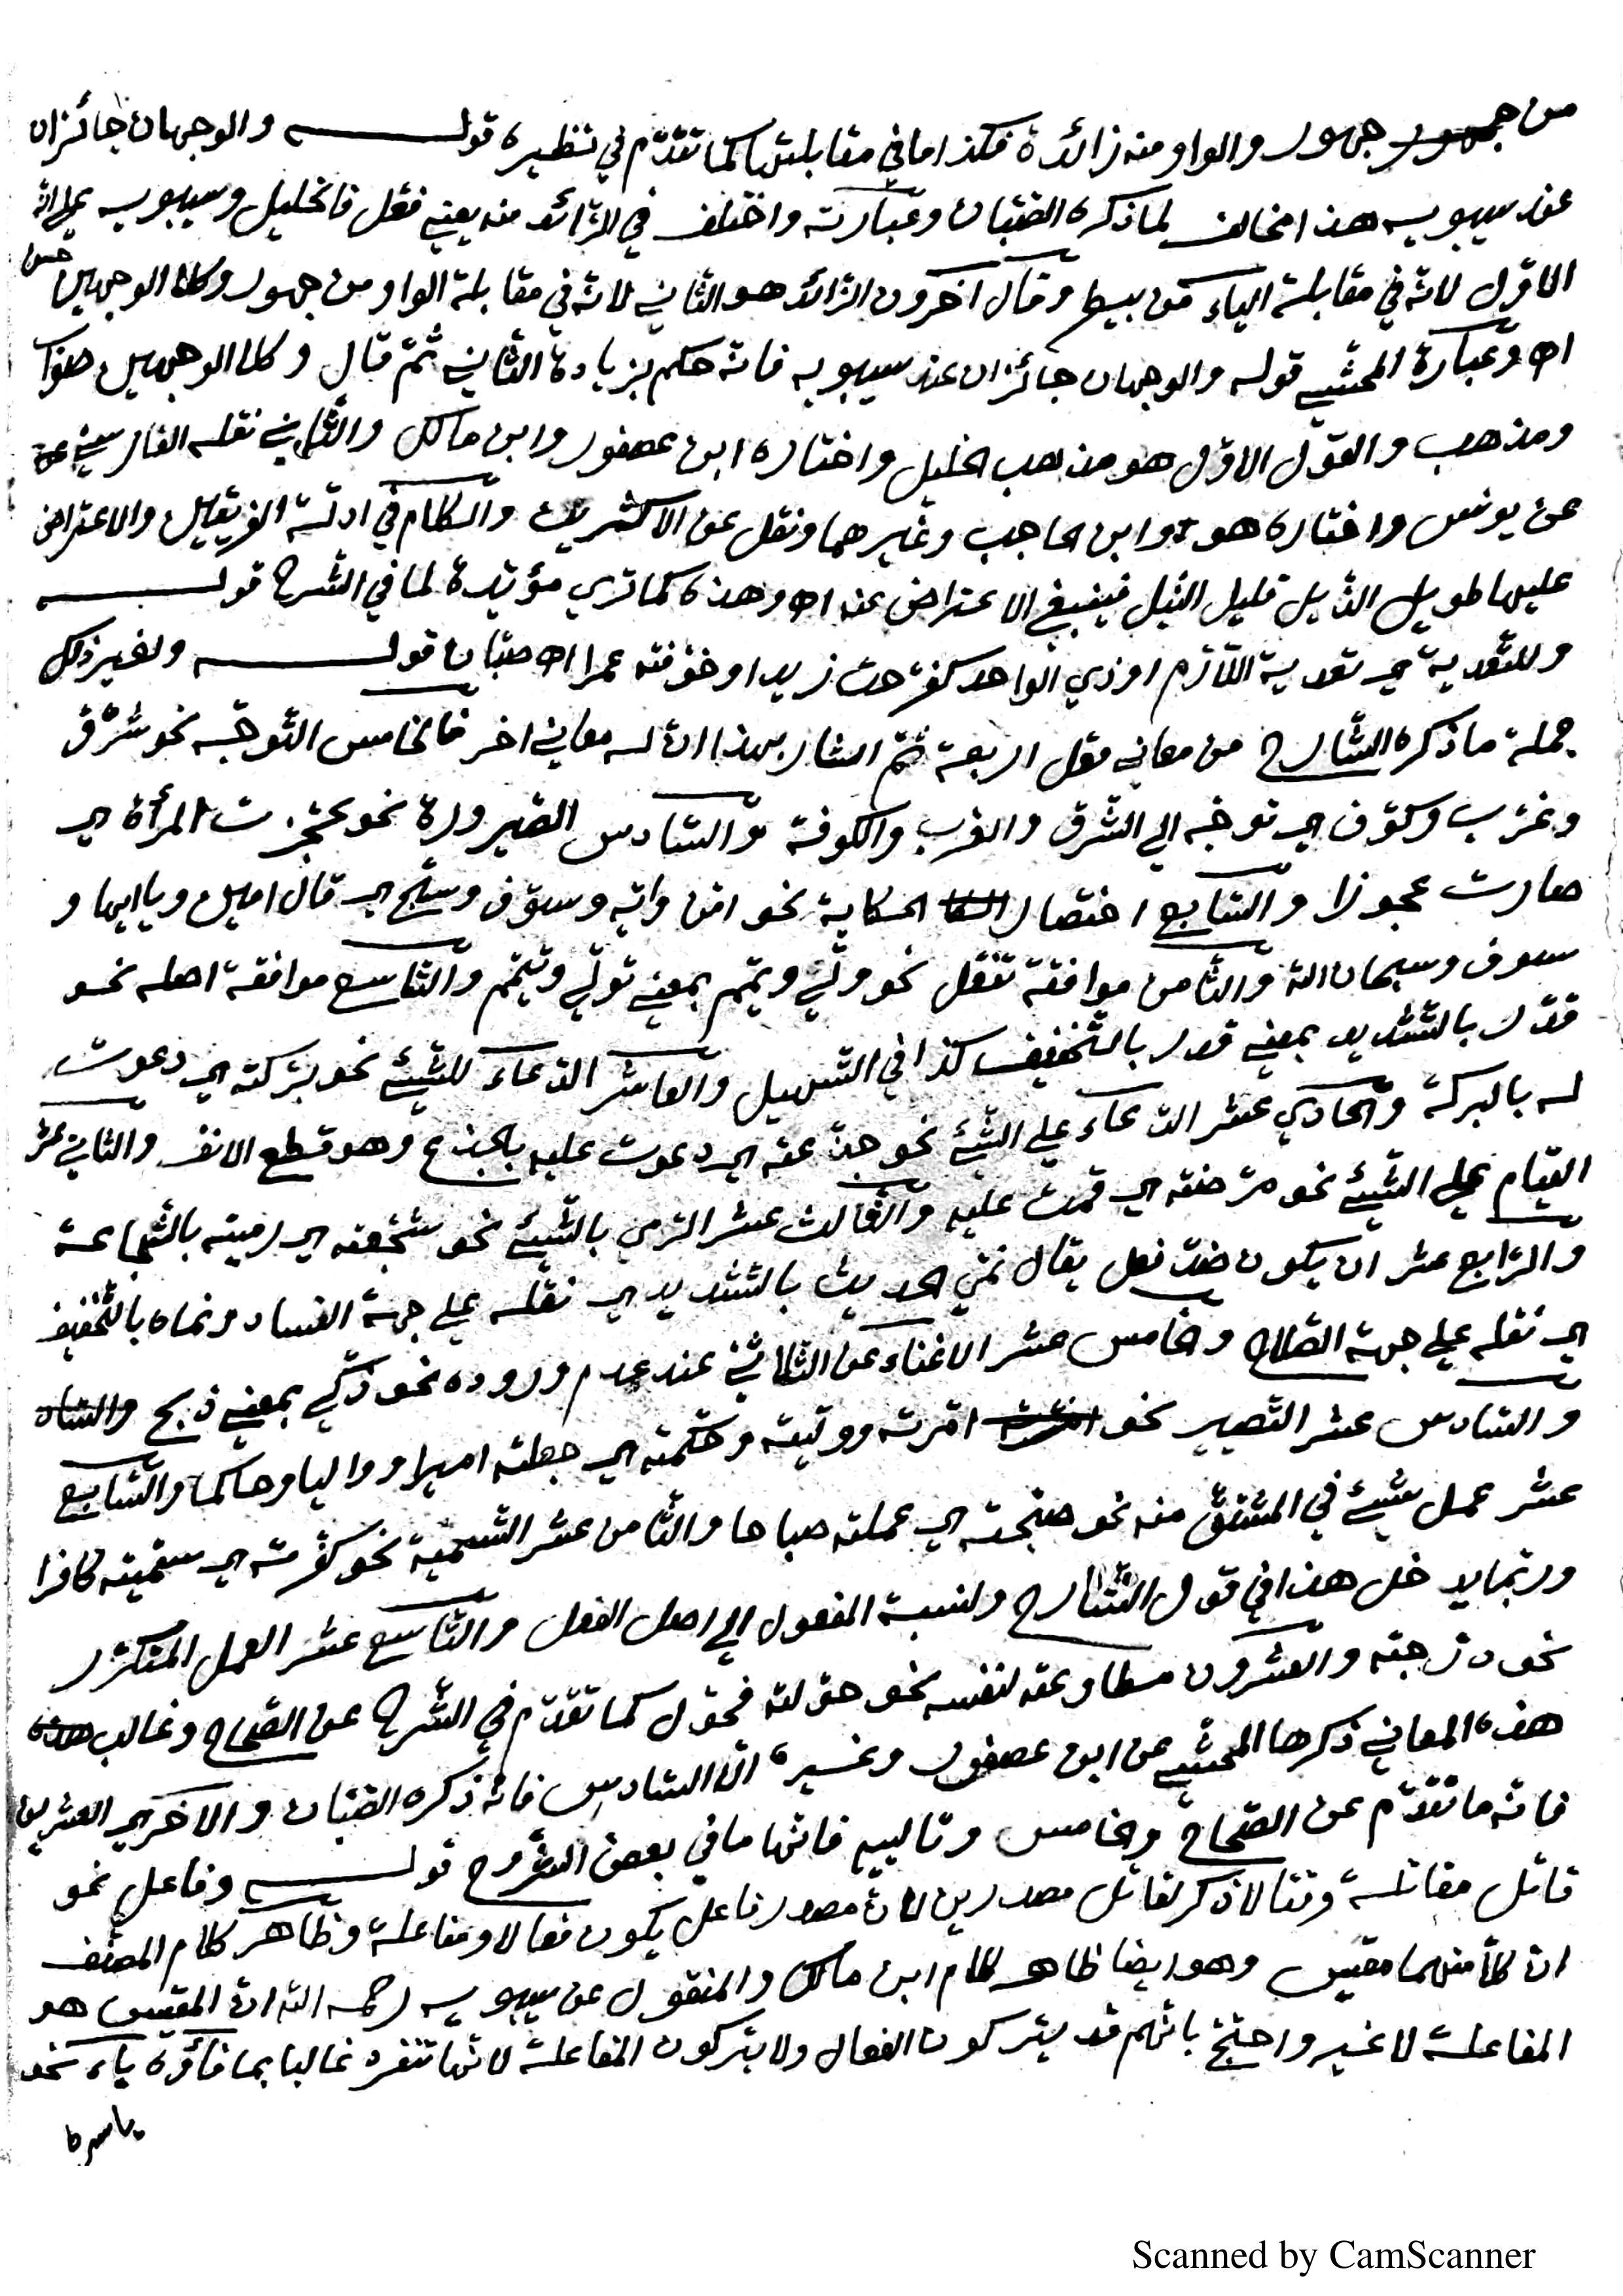 من جهور جهور والواو منه زائدة فكذا ما في مقابلتها كما تقدّم في نظيره قوله والوجهان جائزان
عند سيبويه هذا مخالف لما ذكره الصّبّان وعبارته واختلف في الزّائد منه يعني فعّل فالخليل وسيبويه على انّه
الاوّل لانّه في مقابلة الياء من بيطر وقال آخرون الزّائد هو الثّاني لانّه في مقابلة الواو من جهور وكلا الوجهين حسن
اه وعبارة المحشّي قوله والوجهان جائزان عند سيبويه فانّه حكم بزيادة الثّاني ثمّ قال وكلا الوجهين صواب
ومذهب والقول الاوّل هو مذهب الخليل واختاره ابن عصفور وابن مالك والثّاني نقله الفارسي عن
عن يونس واختاره هو وابن الحاجب وغيرهما ونقل عن الاكثرين والكلام في ادلّة الفريقين والاعتراض
عليها طويل الذّيل قليل النّيل فينبغي الاعتراض عنه اه وهذه كما تري مؤيّدة لما في الشّرح قوله
وللتّعدية اي تعدية اللّازم او ذي الواحد كفرّحت زيدا وخوّفته عمرا اه صبّان قوله ولغير ذلك
جملة ما ذكره الشّارح من معاني فعّل اربعة ثمّ اشار بهذا انّ له معاني اخر فالخامس التّوجّه نحو شرّق
وغرّب وكوّف اي توجّه الي الشّرق والغرب والكوفة والسّادس الصّيرورة نحو عجّزت المرأة اي
صارت عجوزا والسّابع اختصار الحكاية نحو امّن وايّه وسوّف وسبّح اي قال امين ويا ايها و
سوف وسبحان الله والثّامن موافقة تفعّل نحو ولّي ويمّم بمعني تولّي وتيمّم والتّاسع موافقة اصله نحو
قدّر بالتّشديد بمعني قدر بالتّخفيف كذا في التّسهيل والعاشر الدّعاء للشّيئ نحو برّكته اي دعوت
له بالبركة والحادي عشر الدّعاء علي الشّيئ نحو جدّعته اي دعوت عليه بالجذع وهو قطع الانف والثاني عشر
القيام علي الشّيئ نحو مرّضته اي قمت عليه والثّالث عشر الرّمي بالشّيئ نحو شجّعته اي رميته بالشّجاعة
والرّابع عشر ان يكون ضدّ فعل يقال نمّي الحديث بالتّشديد اي نقله علي جهة الفساد ونماه بالتّخفيف
اي نقله علي جهة الصّلاح وخامس عشر الاغناء عن الثّلاثي عند عدم وروده نحو ذكّي بمعني ذبح والساد
والسّادس عشر التّصيير نحو امّرته وولّيته وحكّمته اي جعلته اميرا وواليا وحاكما والسّابع
عشر عمل شيئ في المشتقّ منه نحو صبّحته اي عملته صباحا والثّامن عشر التّسمية نحو كفّرته اي سمّيته كافرا
وربّما يدخل هذا في قول الشّارح ولنسبة المفعول الي اصل الفعل والتّاسع عشر العمل المتكرّر
نحو درّجته والعشرون مطاوعته لنفسه نحو حوّلته فحوّل كما تقدّم في الشّرح عن الصّحاح وغالب هذه
هذه المعاني ذكرها المحشّي عن ابن عصفور وغيره الّا السّادس فانّه ذكره الصّبّان والاخر اي العشرين
فانّه ما تقدّم عن الصّحاح والخامس وتالييه فانّها ما في بعض الشّروح قوله وفاعل نحو
قاتل مقاتلة وقتالا ذكر لقاتل مصدرين لانّ مصدر فاعل يكون فعالا ومفاعلة وظاهر كلام المصنّف
انّ كلّا منهما مقيس وهو ايضا ظاهر كلام ابن مالك والمنقول عن سيبويه رحمه الله انّ المقيس هو
المفاعلة لا غير واحتجّ بانّهم قد يتركون الفعال ولا يتركون المفاعلة لانّها تنفرد غالبا بما فاؤه ياء نحو
ياسره
Scanned by CamScanner